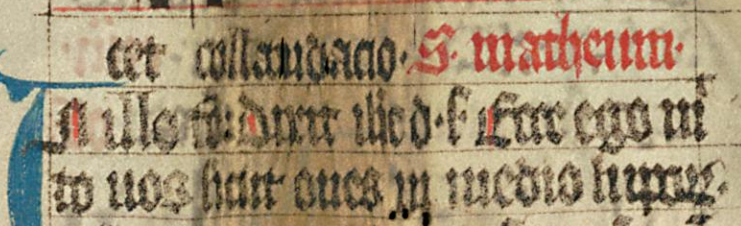 cet collaudacio. S. matheum.
In illo t: Dixit ihc d. s. Ecce ego mi
to uos sicut oues in medio lupor.